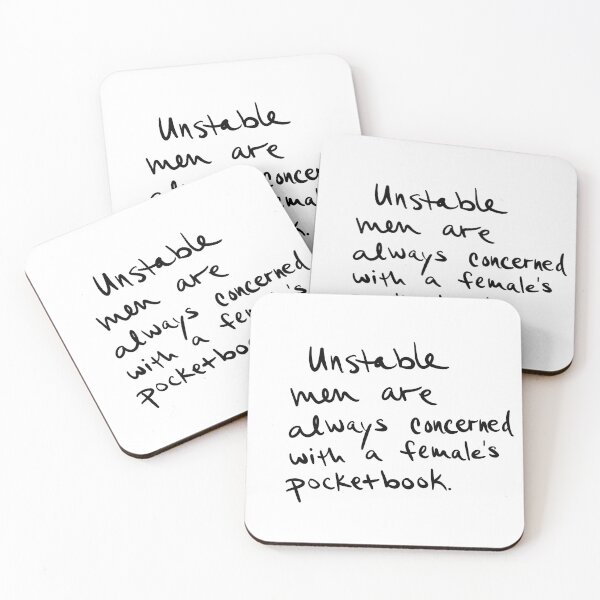 Unstable
men are
concer
femal
Unstable
men are
always concerned
with a female's
Unstable
men are
always concerned
with a female's
pocketbook.
Unstable
men are
always concerned
with a female's
pocketbook.